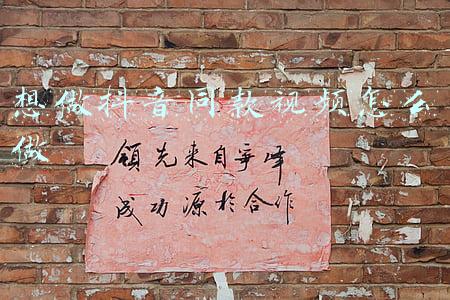 想做抖音同款视频怎么
做
领先来自争峰
成功源於合作